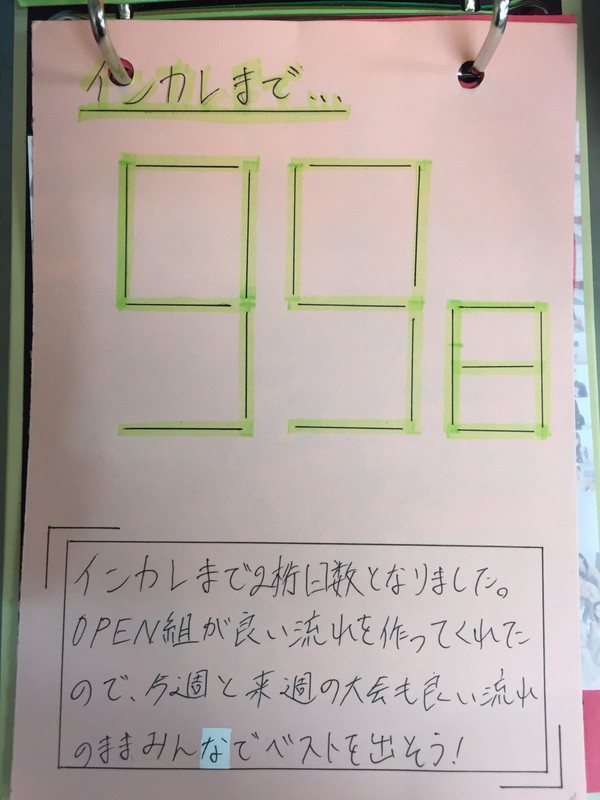 インカレまで...
99日
インカレまで2桁日数となりました。
OPEN組が良い流れを作ってくれた
ので、今週と来週の大会も良い流れ
のままみんなでベストを出そう!